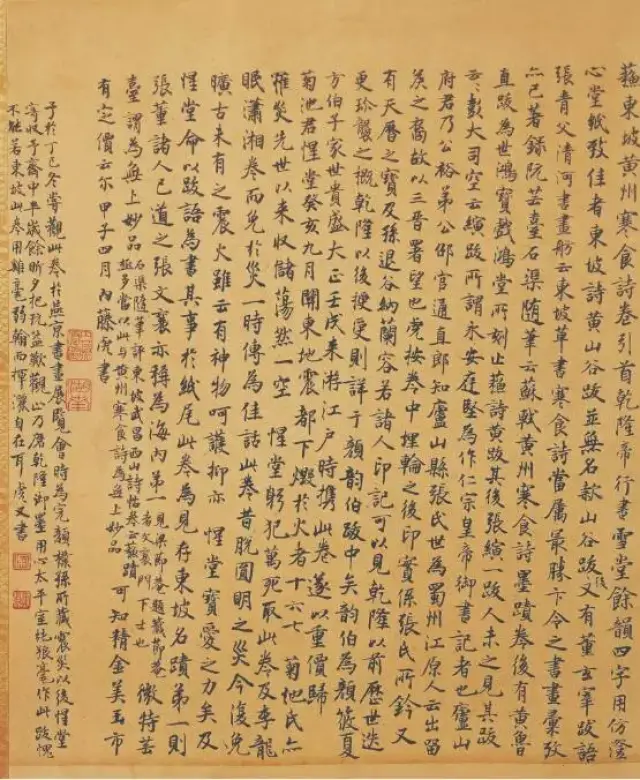 蘓東坡黄州寒食詩卷引首乾隆帝行書雪堂餘韻四字用仿澄
心堂紙致佳者東坡詩黄山谷跋並無名款山谷跋後又有董玄宰跋語
張青父清河書畫舫云東坡草書寒食詩當屬最勝卞令之書畫彙攷
亦已著錄阮芸臺石渠隨筆云蘇軾黄州寒食詩墨蹟卷後有黄魯
直跋為世鴻寶戲鴻堂所刻止蘓詩黄跋其後張縯一跋人未之見其跋
云々數大司空云縯跋所謂永安庭堅為作仁宗皇帝御書記者也廬山
府君乃公裕弟公邵官通直郎知廬山縣張氏世為蜀州江原人云出留
矦之裔故以三晉署望也按卷中埋輪之後印實係張氏所鈐又
有天曆之寶及孫退谷納蘭容若諸人印記可以見乾隆以前歷世迭
更珍襲之概乾隆以後授受則詳于顏韵伯跋中矣韵伯為顏筱夏
方伯子家世貴盛大正壬戌来游江户時携此卷遂以重價歸
菊池君惺堂癸亥九月關東地震都下燬於火者十六七 菊池氏亦
罹災先世以来收儲蕩然一空 惺堂躬犯萬死取此卷及李龍
眠瀟湘卷而免於災一時傳為佳話此卷昔脱圓明之災今復免
曠古未有之震火雖云有神物呵護抑亦 惺堂寶愛之力矣及
惺堂命以跋語為書其事於紙尾此卷為見存東坡名蹟第一則
張董諸人已道之張文襄亦稱為海内第一 見梁節庵題藏節庵
者文襄門下士也 微特芸
臺謂為無上妙品 石渠随筆評東坡武昌西山詩帖卷云蘓蹟
極多當以此与黄州寒食詩為無上妙品 可知精金美玉市
有定價云尔 甲子四月 内藤虎書
予於丁巳冬嘗觀此卷於燕京書畫展覧會時為完顏樸孫所藏震災以後惺堂
寄收予齋中半歳餘昕夕把玩益歎觀止乃磨乾隆御墨用心太平室純狼毫作此跋愧
不能若東坡此卷用雞毫弱翰而揮灑自在耳 虎又書